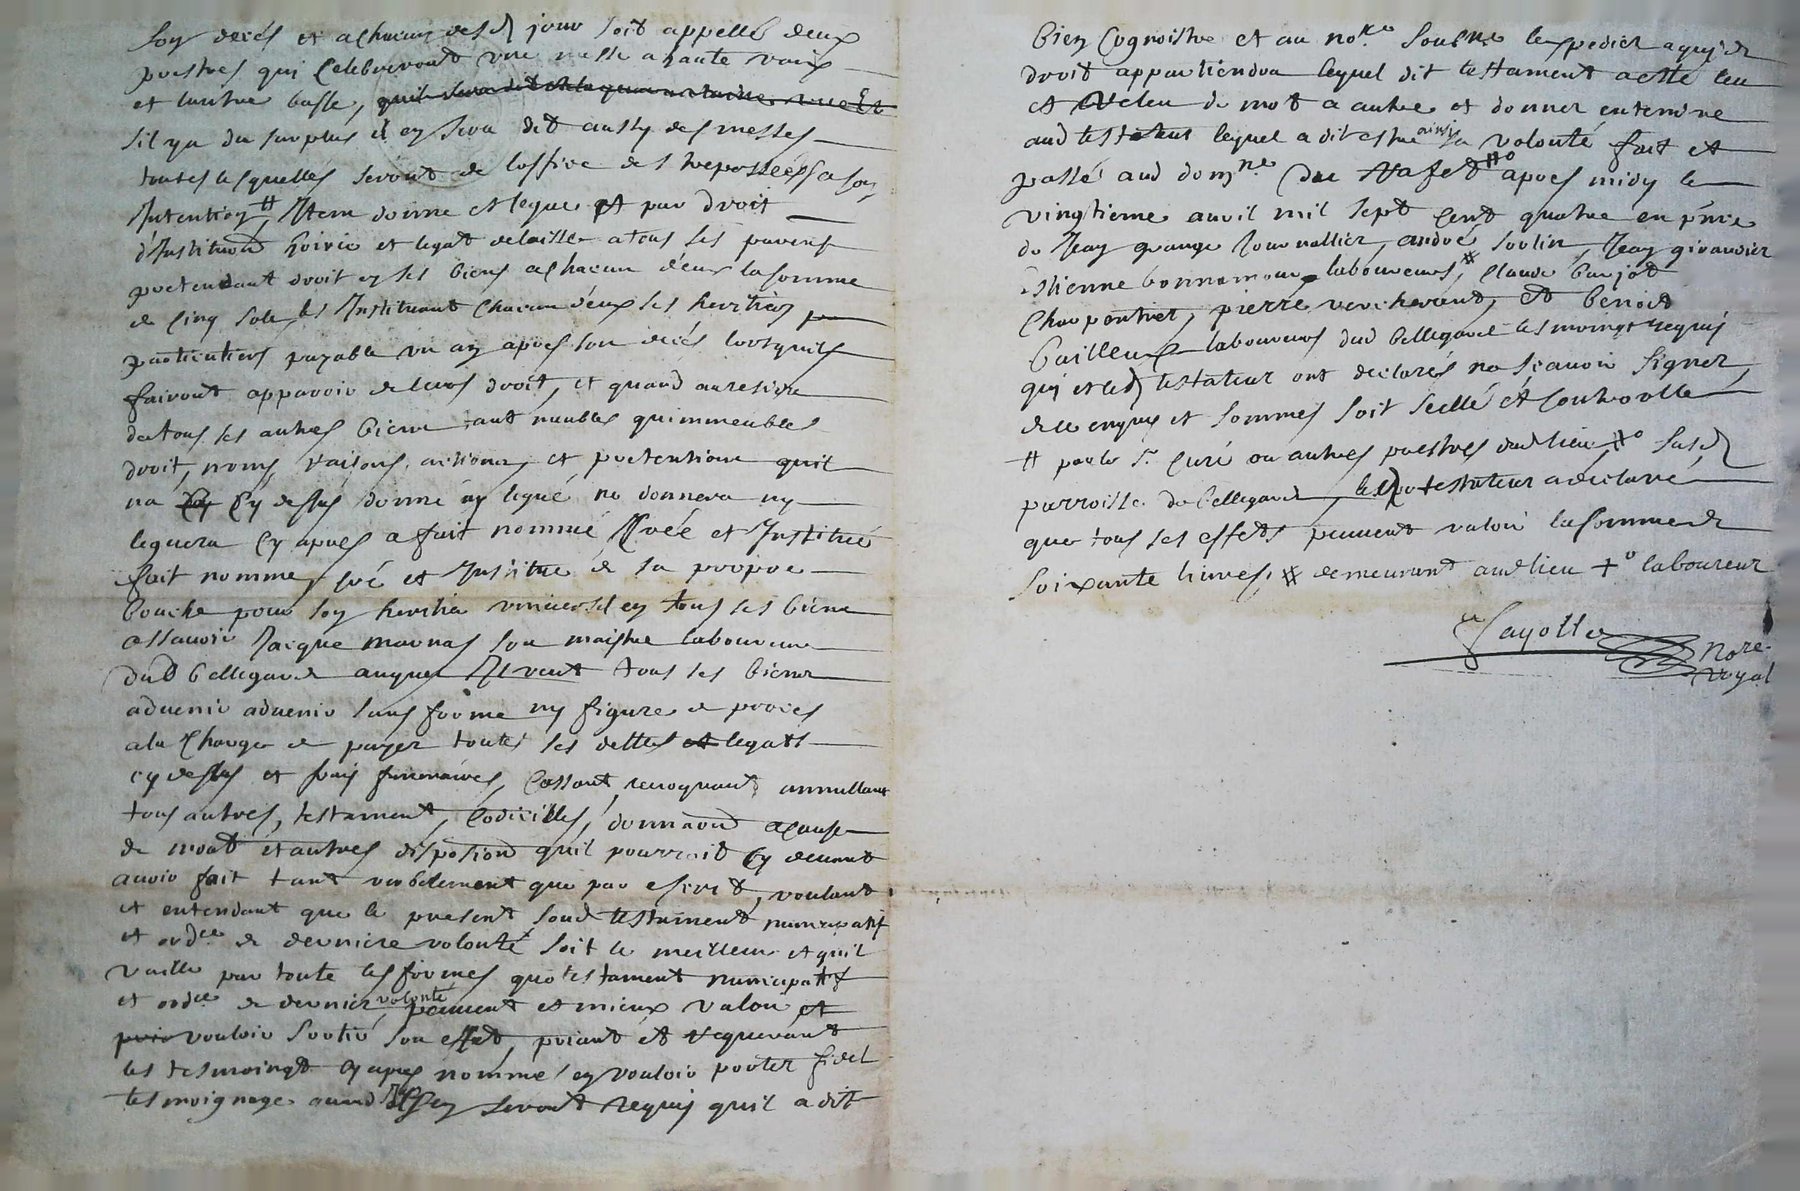 Son deces et a chacun desd jour soit appellé deux
prestres qui celebreront une messe a haute voix
et lautre basse, quil sera dit
sil y a du surplus il en sera dit aussy des messes
touttes lesquelles seront de loffice des trepassées a son
Intention # Item donne et legue et par droit
d'Institution hoirie et legat delaisse a tous ses parens
pretendant droit en ses biens a chacun d'eux la somme
de cinq sols les Instituant chacun d'eux ses heritiers
particuliers payable un an apres son deces lorsquils
fairont apparoir de leurs droit, et quand au reside
de tous ses autres biens tant meubles quimmeubles
droit, noms, raisons, actions, et pretentions quil
na cy dessus donné ny legué ne donnera ny
leguera cy apres a fait nommé créé et Institué
fait nomme, créé et Institue de sa propre
bouche pour son heritier universel en tous ses biens
assavoir Jacque marnas son maistre laboureur
dud bellegarde auquel Il veut tous ses biens
advenir advenir sans forme ny figure de proces
a la charge de payer toutes ses dettes et legats
cy dessus et frais funeraires, Cassant, revoquant, annullant
tous autres, testament, Codicilles, donnaond a cause
de mort et autres disposiond quil pourroit cy devant
avoir fait tant verbalement que par escrit, voulant
et entendant que le present soud testament nuncupatif
et ord.ce de derniere volonté soit le meilleur et quil
vaille par toute les formes que testament nuncupatif
et ord.ce de dernier volonté peuvent et mieux valoir et
vouloir sortir son effet, priant et requerant
les tesmoingt cy apres nommé en vouloir porter fidel
tesmoignage quand Ils en seront requis quil a dit
bien cognoistre et au no.re soubne lexpedier a qui de
droit appartiendra lequel dit testament a esté leu
et releu de mot a autre et donner entendre
aud testateur lequel a dit estre ainsy sa volonté fait et
passé aud dom.ne du #o apres midy le
vingtieme avril mil sept cent quatre en p.nce
de Jean grange Journallier, andré soulin, Jean giraudier
Estienne bonnamour laboureurs, # claude banjot
charpentier, pierre vercherand, et benoit
bailleux laboureurs dud bellegarde tesmoingt requis
qui et led testateur ont declarés ne scavoir signer,
de ce enquis et sommés soit scellé et controollé
# par le s.r curé ou autres prestres dud lieu #o susd
parroisse de bellegarde, led testateur a declaré
que tous ses effets peuvent valoir la somme de
soixante livres, # demeurant aud lieu +o laboureur
Cayotte
No.re
royal